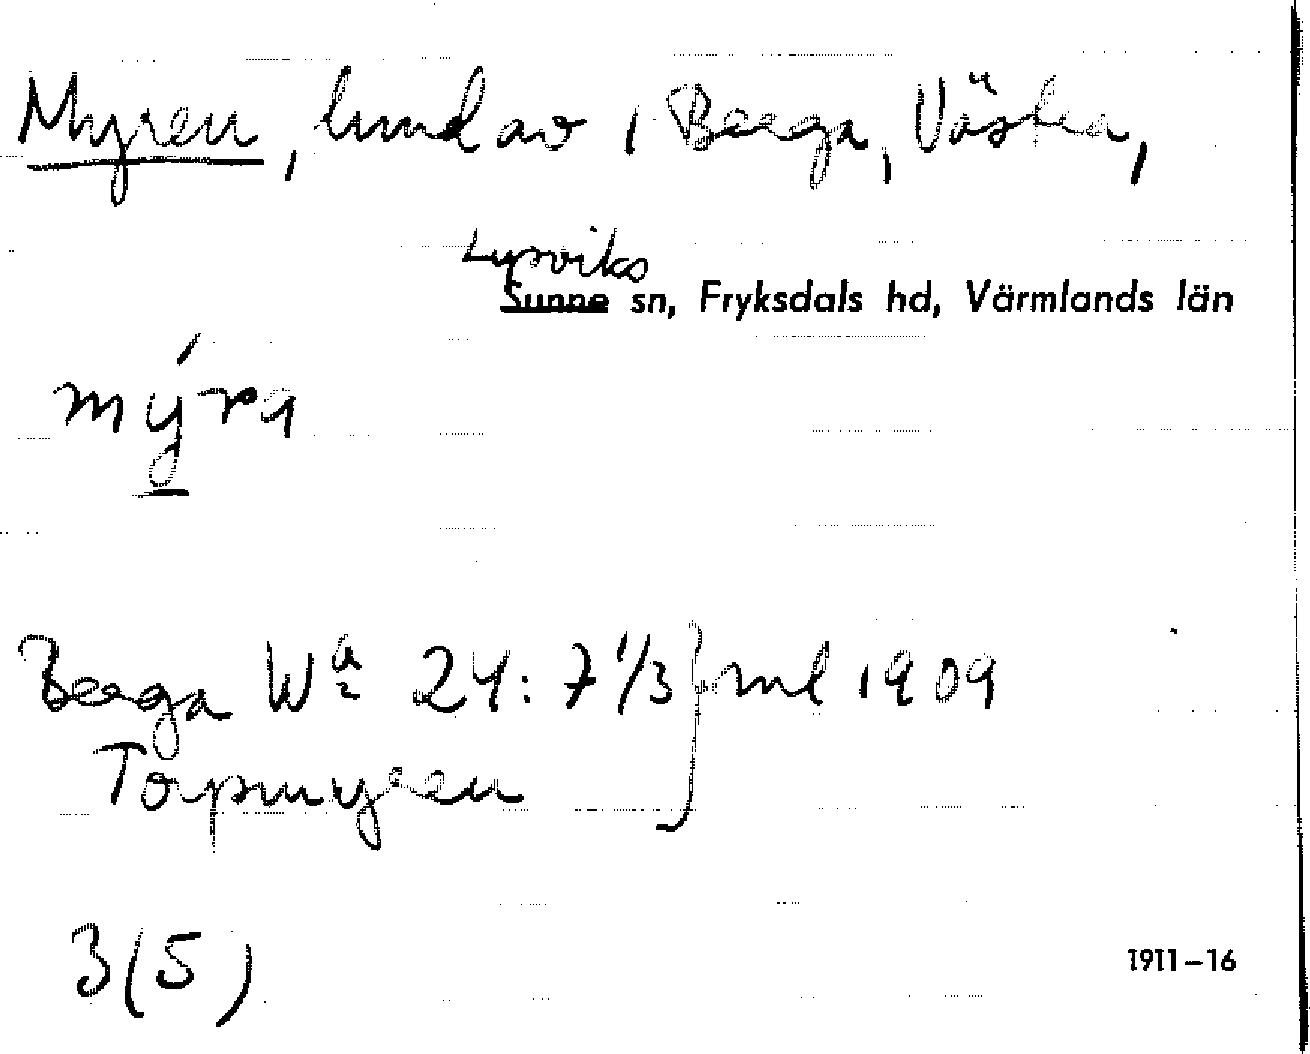 Myren, hmd av i Berga, Västra,
Lysviks
Sunne sn, Fryksdals hd, Värmlands län
mýra
Berga Wa 24:7 1/3 } jml 1909
Torpmyren
3(5)
1911–16